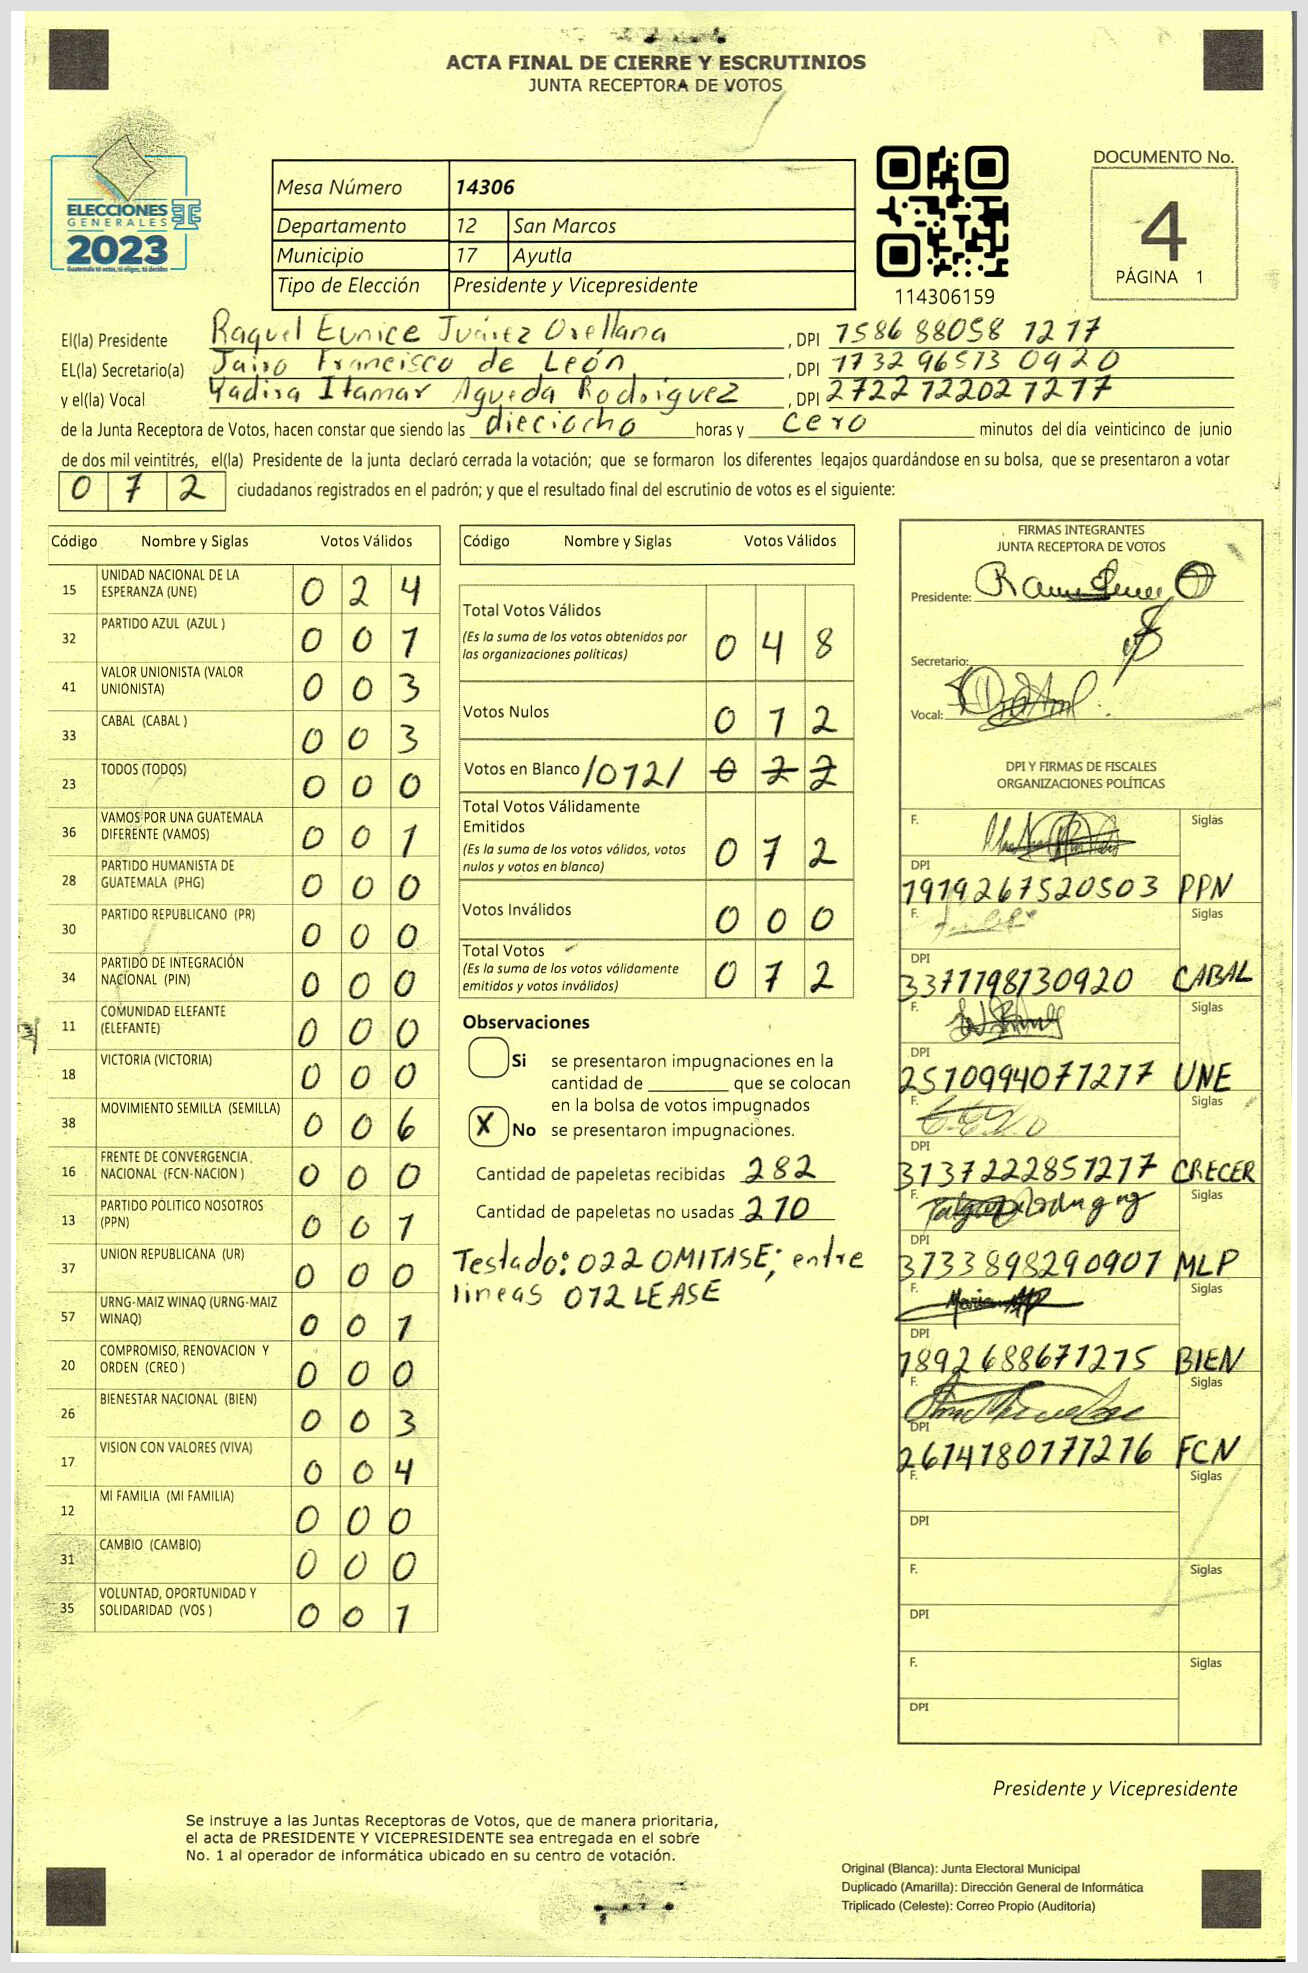 ACTA FINAL DE CIERRE Y ESCRUTINIOS
JUNTA RECEPTORA DE VOTOS
ELECCIONES
GENERALES
2023
Guatemala tú votas, tú eliges, tú decides
Mesa Número 14306
Departamento 12 San Marcos
Municipio 17 Ayutla
Tipo de Elección Presidente y Vicepresidente
114306159
DOCUMENTO No.
4
PÁGINA 1
El(la) Presidente Raquel Eunice Juárez Orellana, DPI 1586 88058 1217
EL(la) Secretario(a) Jairo Francisco de León, DPI 1732 96513 0920
y el(la) Vocal Yadira Itamar Agueda Rodriguez, DPI 2722 72202 1217
de la Junta Receptora de Votos, hacen constar que siendo las dieciocho horas y cero minutos del día veinticinco de junio
de dos mil veintitrés, el(la) Presidente de la junta declaró cerrada la votación; que se formaron los diferentes legajos guardándose en su bolsa, que se presentaron a votar
0 7 2 ciudadanos registrados en el padrón; y que el resultado final del escrutinio de votos es el siguiente:
Código Nombre y Siglas Votos Válidos
15 UNIDAD NACIONAL DE LA ESPERANZA (UNE) 0 2 4
32 PARTIDO AZUL (AZUL ) 0 0 1
41 VALOR UNIONISTA (VALOR UNIONISTA) 0 0 3
33 CABAL (CABAL ) 0 0 3
23 TODOS (TODOS) 0 0 0
36 VAMOS POR UNA GUATEMALA DIFERENTE (VAMOS) 0 0 1
28 PARTIDO HUMANISTA DE GUATEMALA (PHG) 0 0 0
30 PARTIDO REPUBLICANO (PR) 0 0 0
34 PARTIDO DE INTEGRACIÓN NACIONAL (PIN) 0 0 0
11 COMUNIDAD ELEFANTE (ELEFANTE) 0 0 0
18 VICTORIA (VICTORIA) 0 0 0
38 MOVIMIENTO SEMILLA (SEMILLA) 0 0 6
16 FRENTE DE CONVERGENCIA NACIONAL (FCN-NACION ) 0 0 0
13 PARTIDO POLITICO NOSOTROS (PPN) 0 0 1
37 UNION REPUBLICANA (UR) 0 0 0
57 URNG-MAIZ WINAQ (URNG-MAIZ WINAQ) 0 0 1
20 COMPROMISO, RENOVACION Y ORDEN (CREO ) 0 0 0
26 BIENESTAR NACIONAL (BIEN) 0 0 3
17 VISION CON VALORES (VIVA) 0 0 4
12 MI FAMILIA (MI FAMILIA) 0 0 0
31 CAMBIO (CAMBIO) 0 0 0
35 VOLUNTAD, OPORTUNIDAD Y SOLIDARIDAD (VOS ) 0 0 1
Código Nombre y Siglas Votos Válidos
Total Votos Válidos
(Es la suma de los votos obtenidos por
las organizaciones políticas) 0 4 8
Votos Nulos 0 1 2
Votos en Blanco /012/ 0 2 2
Total Votos Válidamente
Emitidos
(Es la suma de los votos válidos, votos
nulos y votos en blanco) 0 7 2
Votos Inválidos 0 0 0
Total Votos
(Es la suma de los votos válidamente
emitidos y votos inválidos) 0 7 2
Observaciones
Si se presentaron impugnaciones en la
cantidad de ________ que se colocan
en la bolsa de votos impugnados
X No se presentaron impugnaciones.
Cantidad de papeletas recibidas 282
Cantidad de papeletas no usadas 210
Testado: 022 OMITASE; entre
lineas 012 LEASE
FIRMAS INTEGRANTES
JUNTA RECEPTORA DE VOTOS
Presidente:
Secretario:
Vocal:
DPI Y FIRMAS DE FISCALES
ORGANIZACIONES POLÍTICAS
F. Siglas
DPI
1919267520503 PPN
F. Siglas
DPI
3371198130920 CABAL
F. Siglas
DPI
2510994071217 UNE
F. Siglas
DPI
3137222851217 CRECER
F. Siglas
DPI
3733898290901 MLP
F. Siglas
DPI
1892688671215 BIEN
F. Siglas
DPI
2614180171216 FCN
F. Siglas
DPI
F. Siglas
DPI
F. Siglas
DPI
Presidente y Vicepresidente
Se instruye a las Juntas Receptoras de Votos, que de manera prioritaria,
el acta de PRESIDENTE Y VICEPRESIDENTE sea entregada en el sobre
No. 1 al operador de informática ubicado en su centro de votación.
Original (Blanca): Junta Electoral Municipal
Duplicado (Amarilla): Dirección General de Informática
Triplicado (Celeste): Correo Propio (Auditoría)